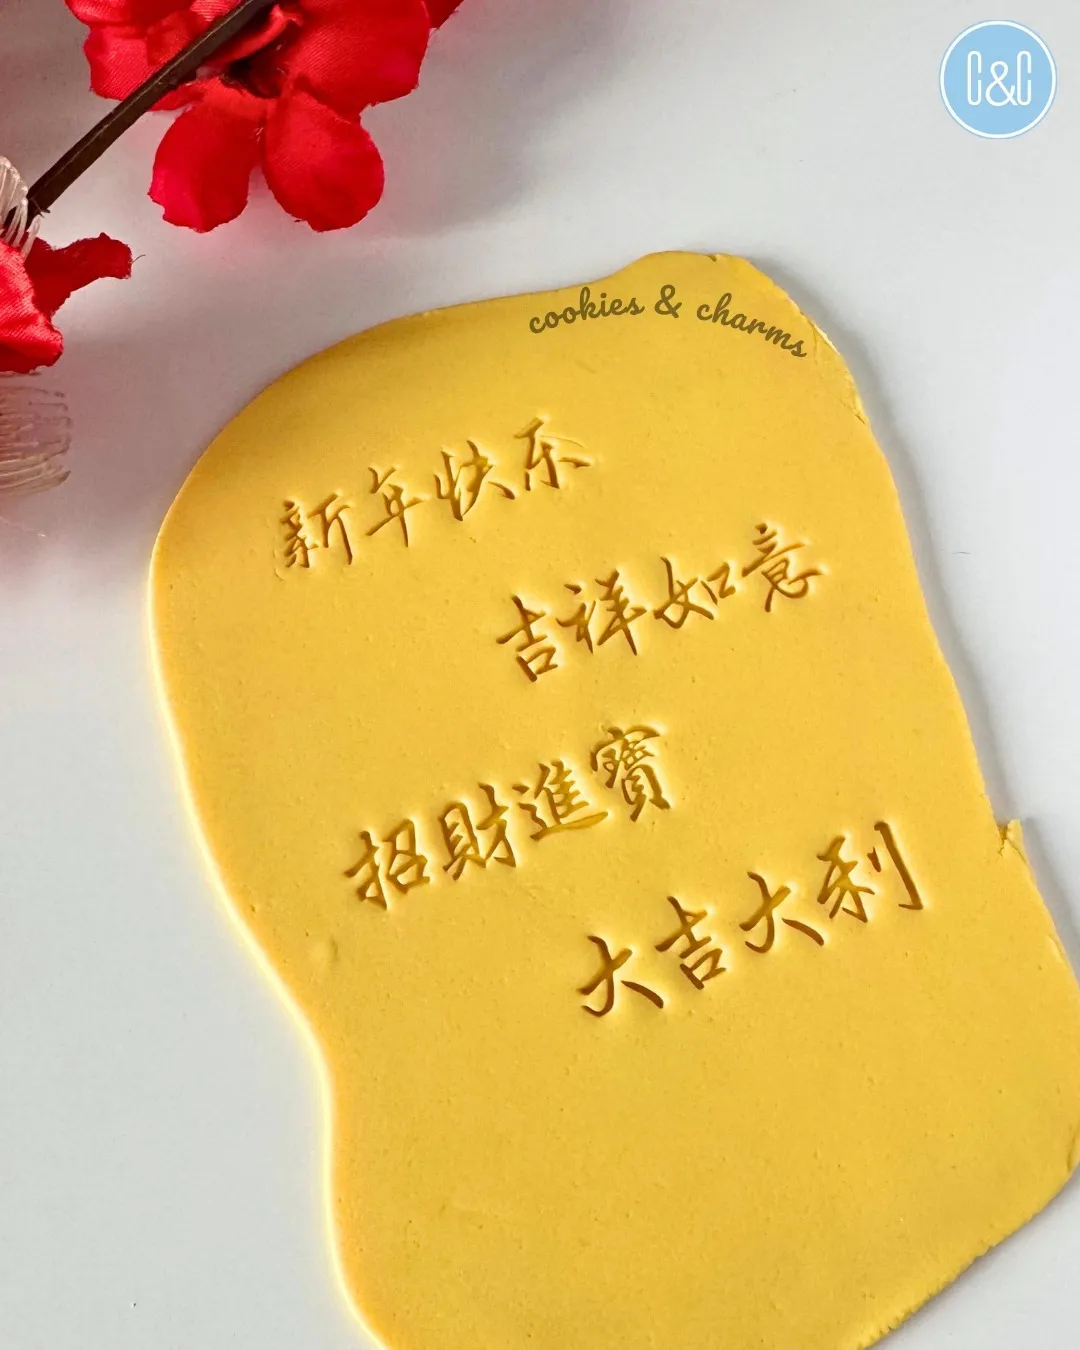 C&C
cookies & charms
新年快乐
吉祥如意
招財進寶
大吉大利